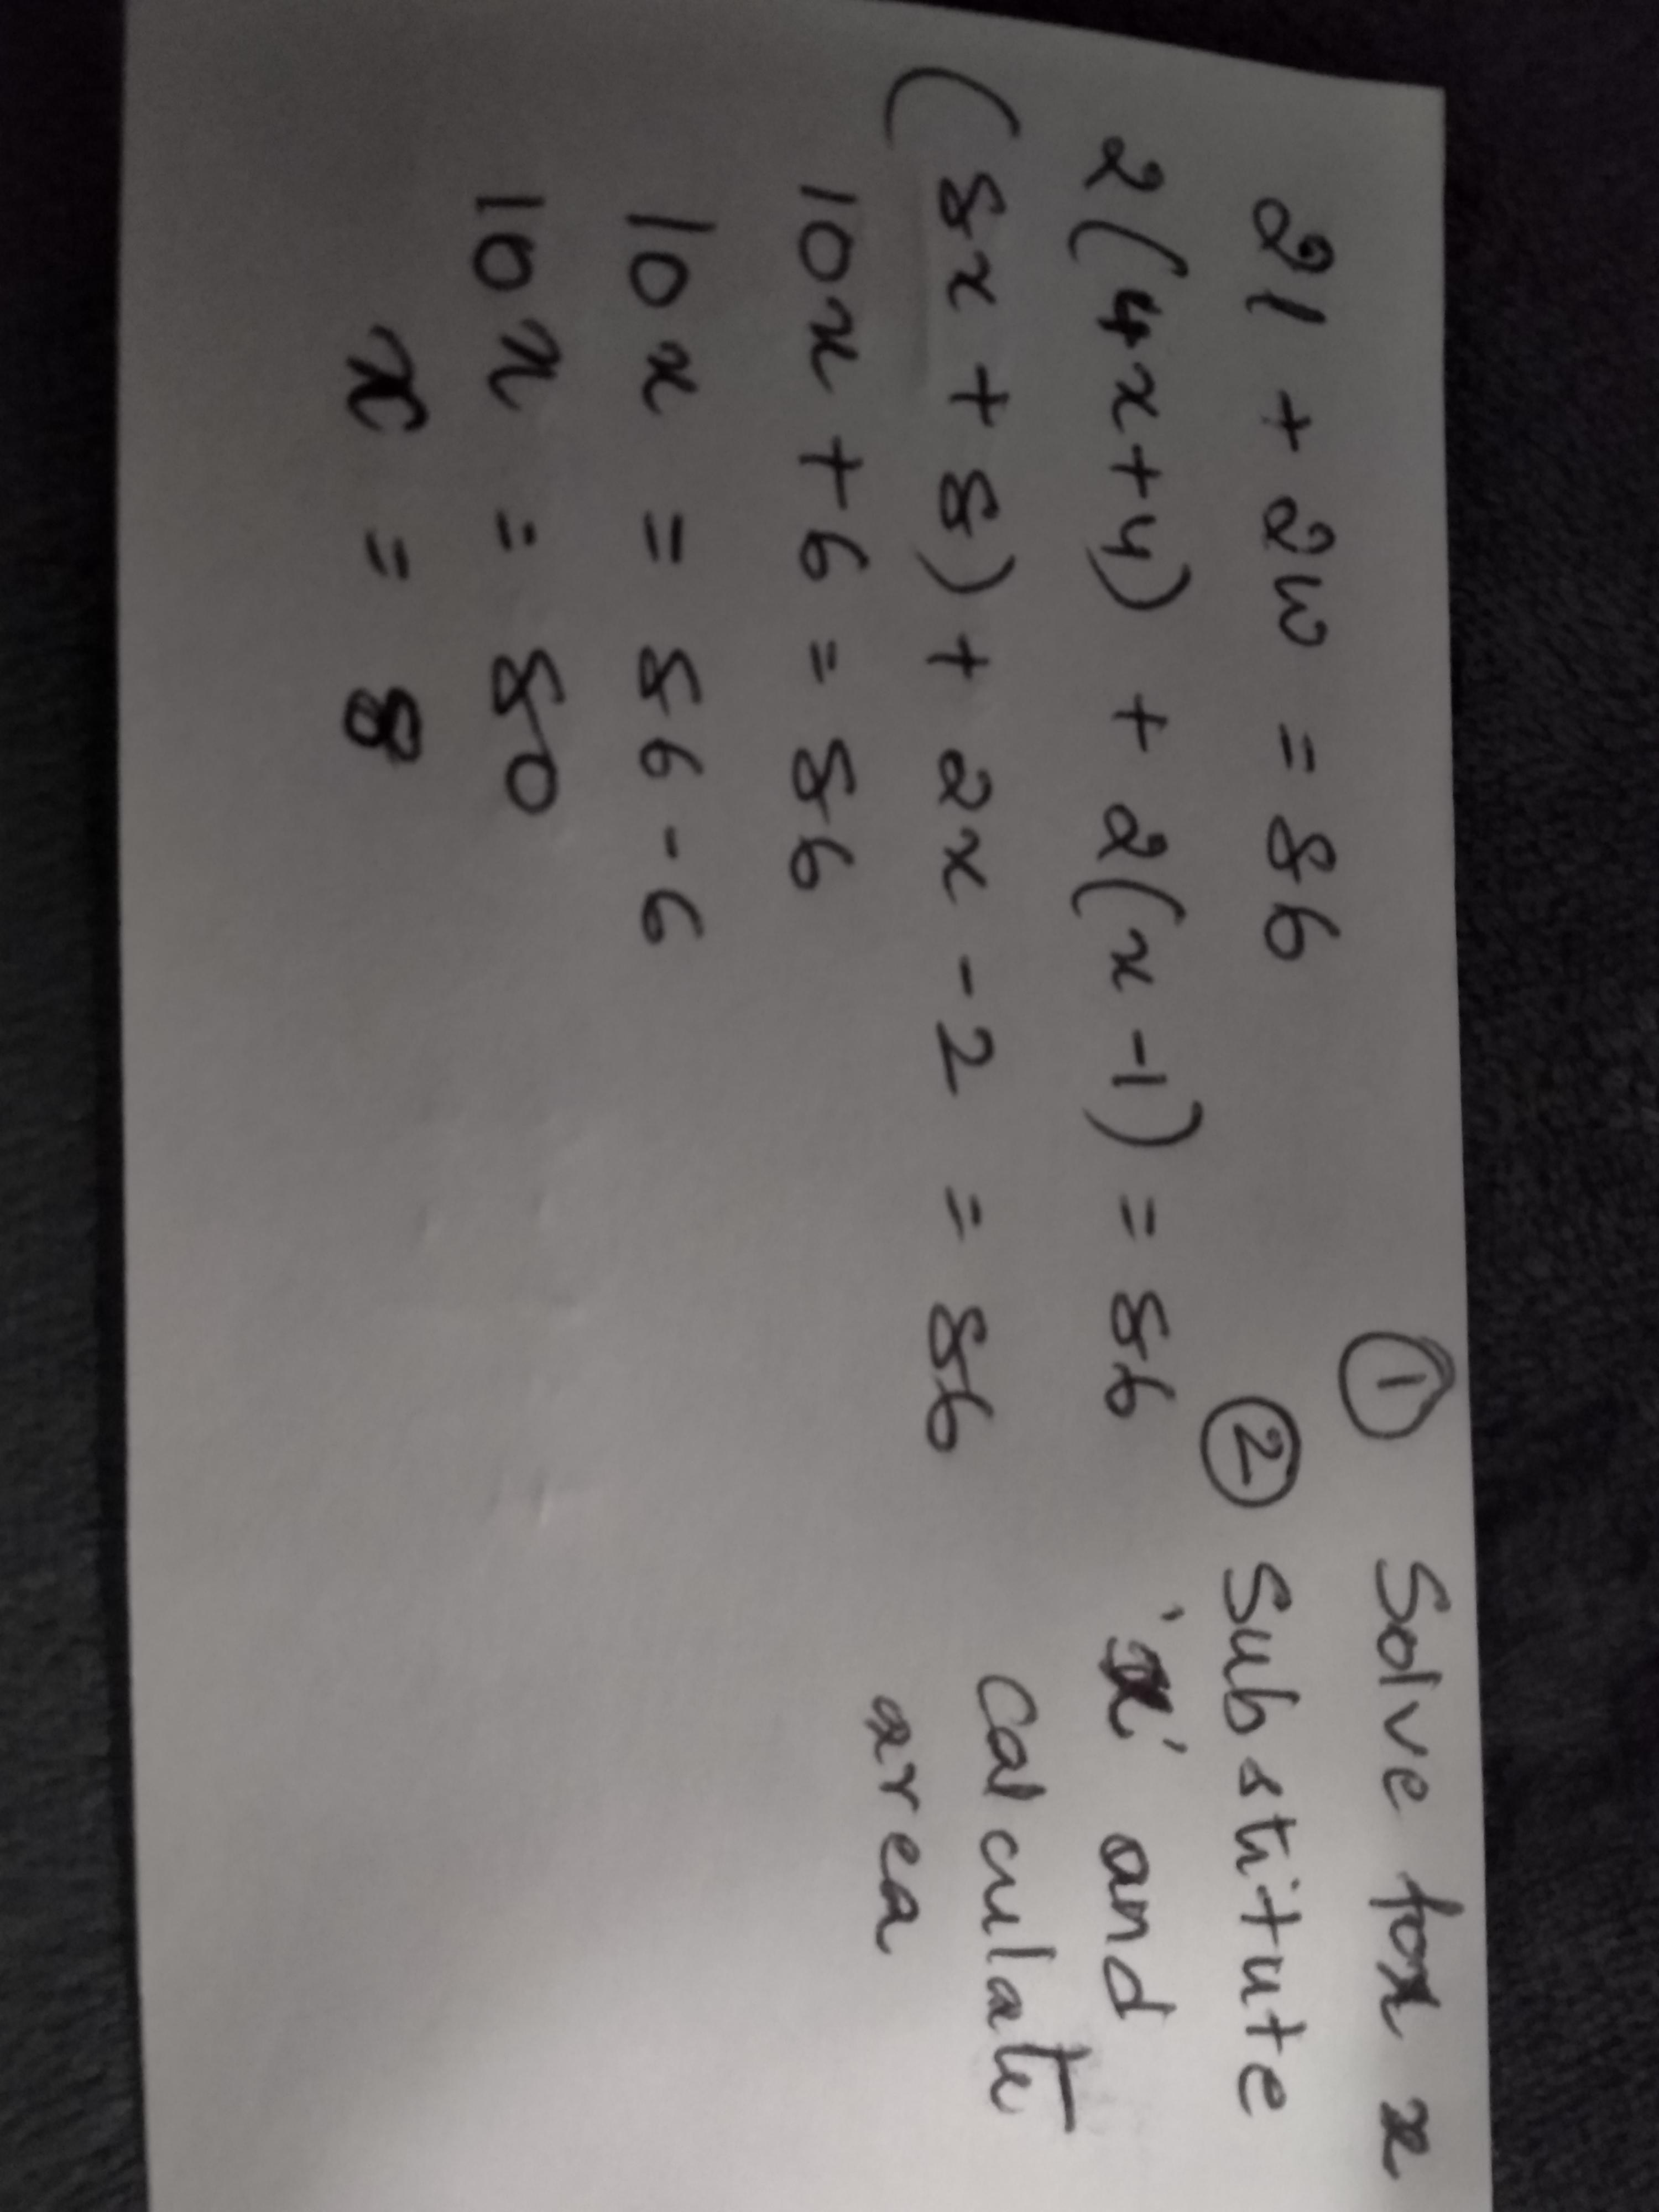 2l + 2w = 86
2(4x+4) + 2(x-1) = 86
(8x + 8) + 2x - 2 = 86
10x + 6 = 86
10x = 86-6
10x = 80
x = 8
① Solve for x
② Substitute
'x' and
calculate
area